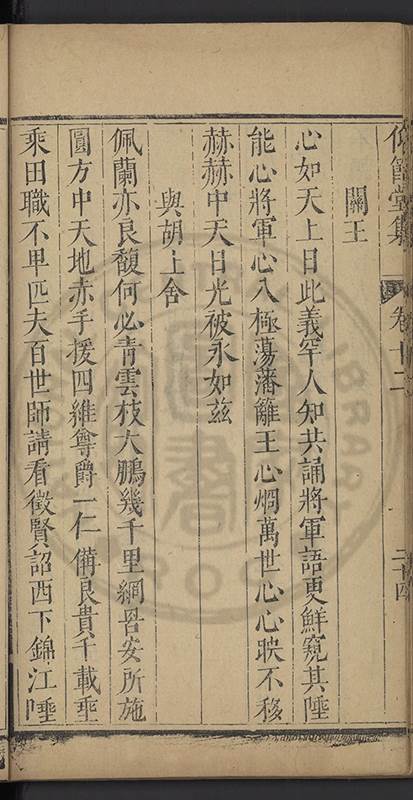 集 卷十二 二十四
關王
心如天上日此義罕人知共誦將軍語更鮮窺其陲
能心將軍心八極蕩藩籬王心炯萬世心心映不移
赫赫中天日光被永如茲
與胡上舍
佩蘭亦良馥何必青雲枝大鵬幾千里網罟安所施
圓方中天地赤手援四維尊爵一仁備良貴千載垂
乘田職不卑匹夫百世師請看徵賢詔西下錦江陲